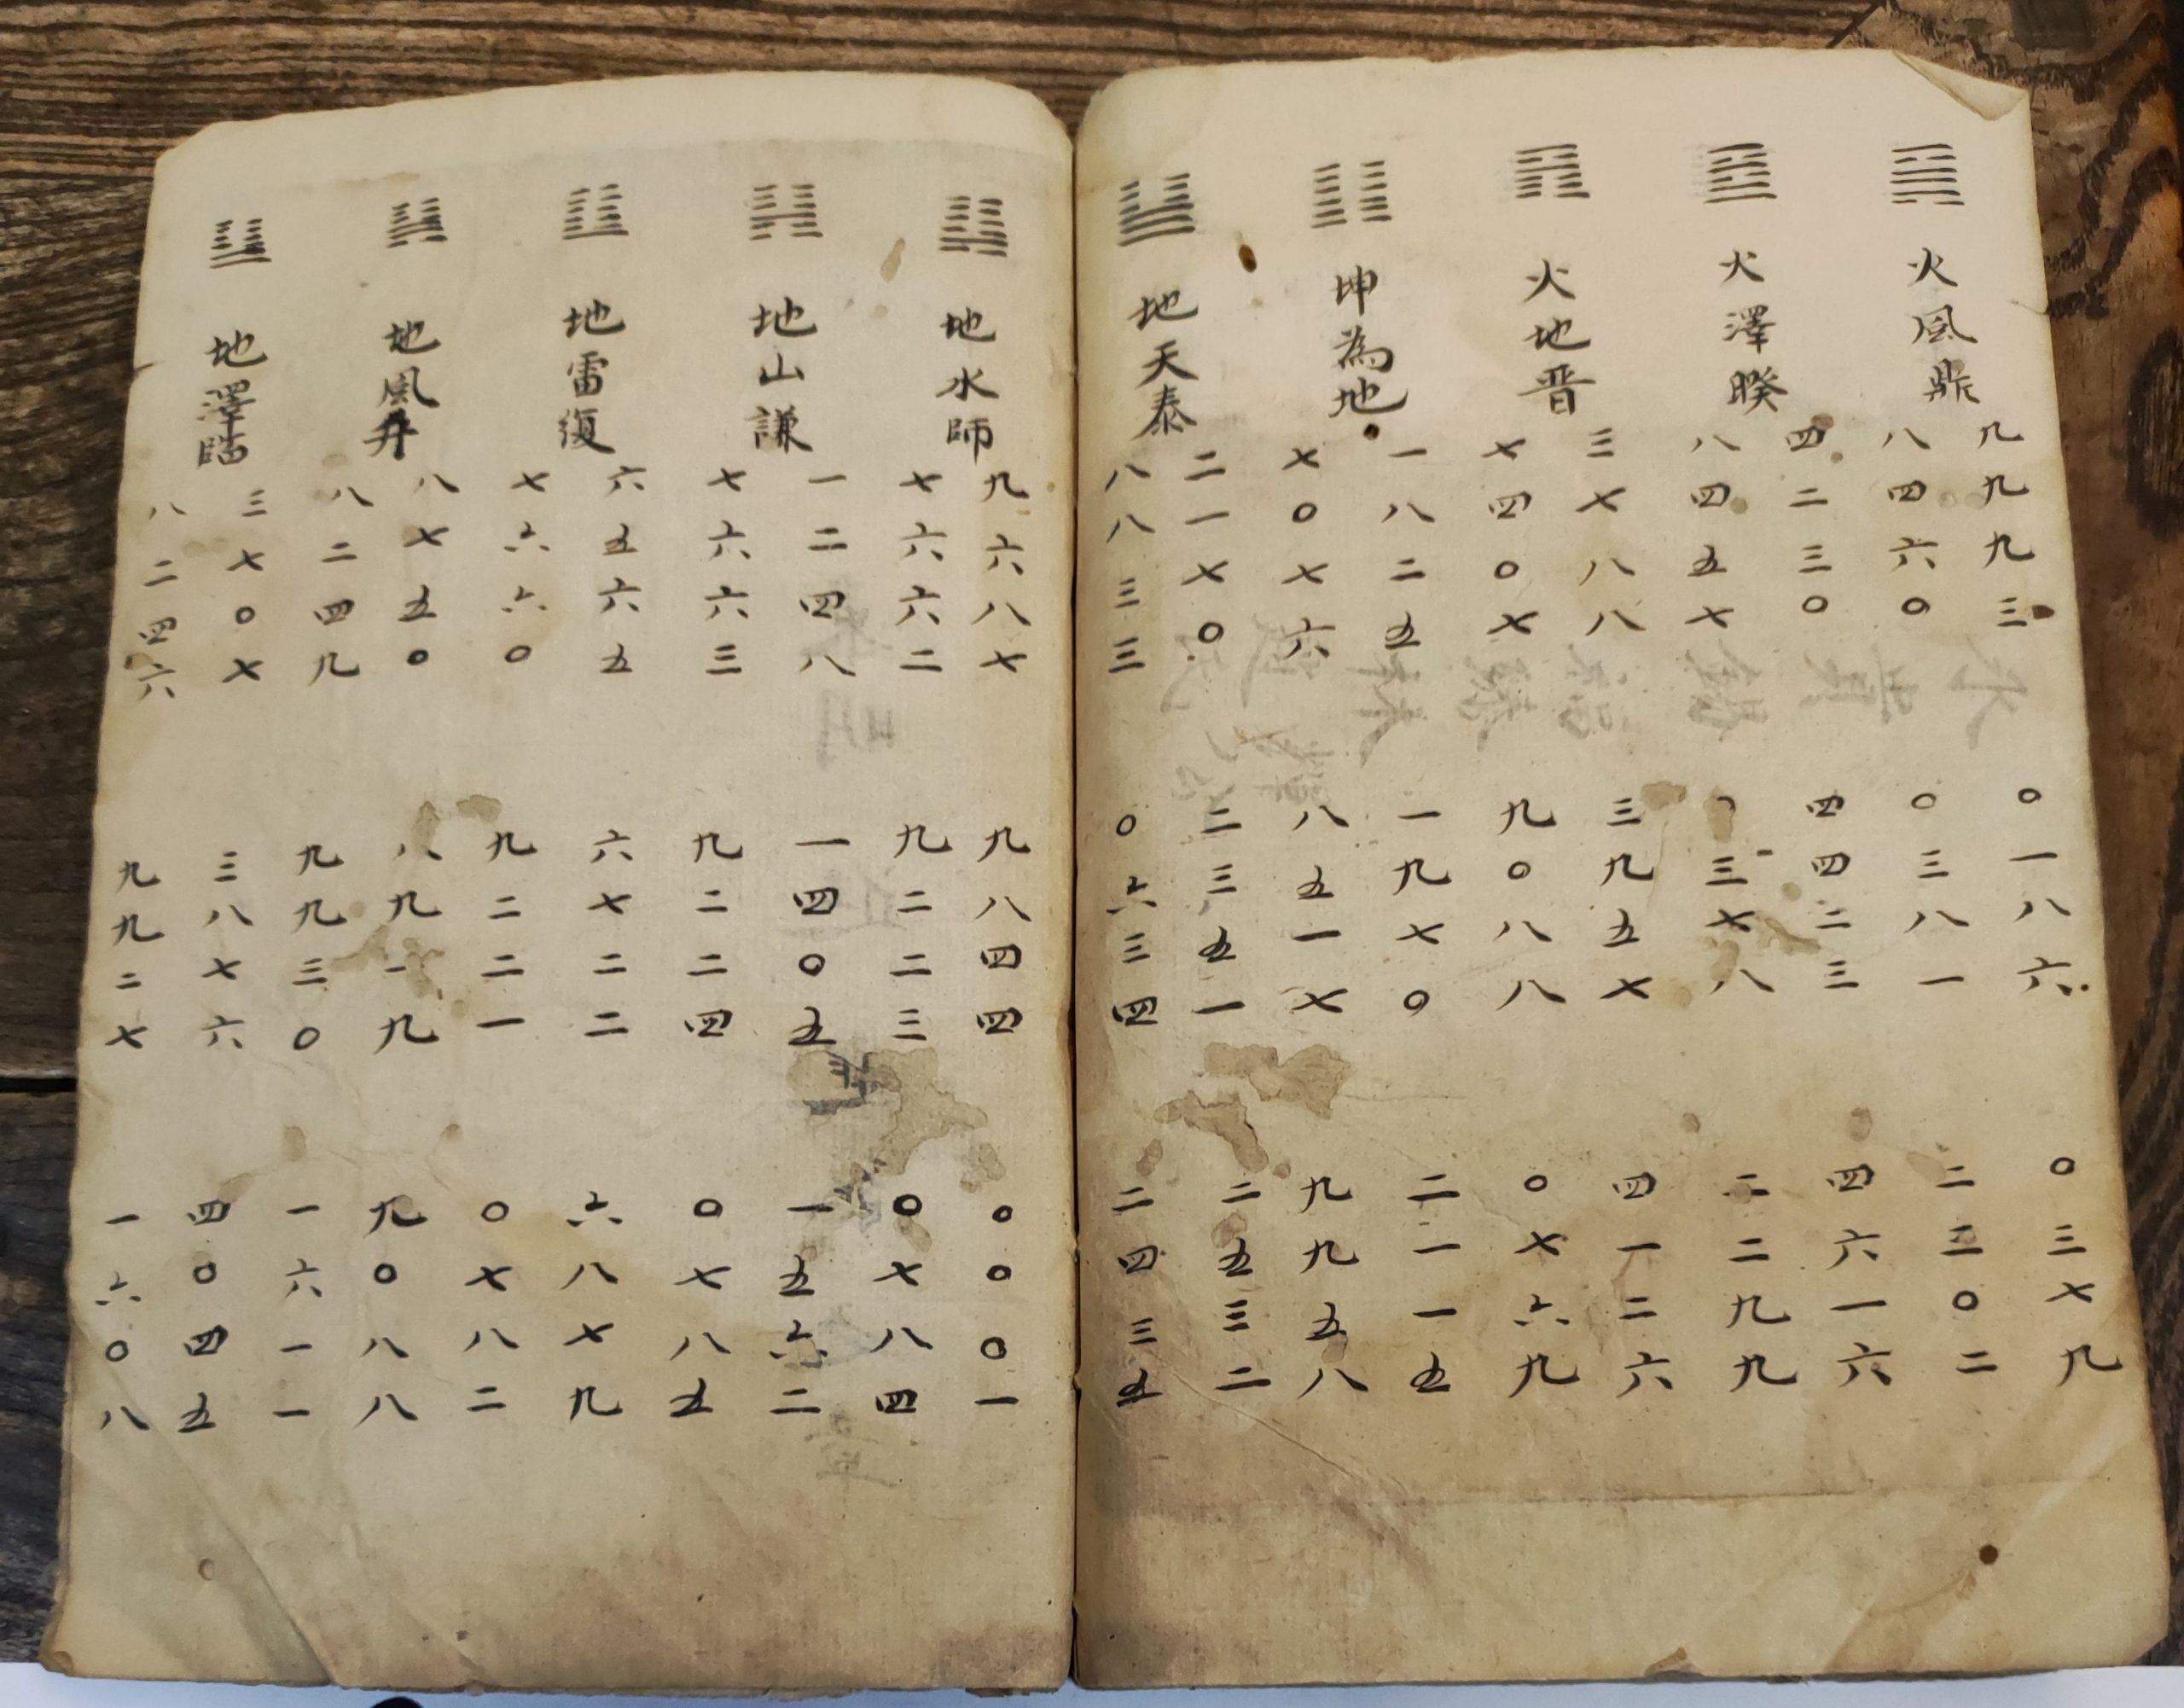 火風鼎
九九九三 〇一八六 〇三七九
八四六〇 〇三八一 二三〇二
火澤暌
四二三〇 四四二三 四六一六
八四五七 三七八 二二九九
火地晋
三七八八 三九五七 四一二六
七四〇七 九〇八八 〇七六九
坤為地
一八二五 一九七〇 二一一五
七〇七六 八五一七 九九五八
地天泰
二一七〇 二三五一 二五三二
八八三三 〇六三四 二四三五
地水師
九六八七 九八四四 〇〇〇一
七六六二 九二二三 〇七八四
地山謙
一二四八 一四〇五 一五六二
七六六三 九二二四 〇七八五
地雷復
六五六五 六七二二 六八七九
七六六〇 九二二一 〇七八二
地風升
八七五〇 八九一九 九〇八八
八二四九 九九三〇 一六一一
地澤臨
三七〇七 三八七六 四〇四五
八二四六 九九二七 一六〇八